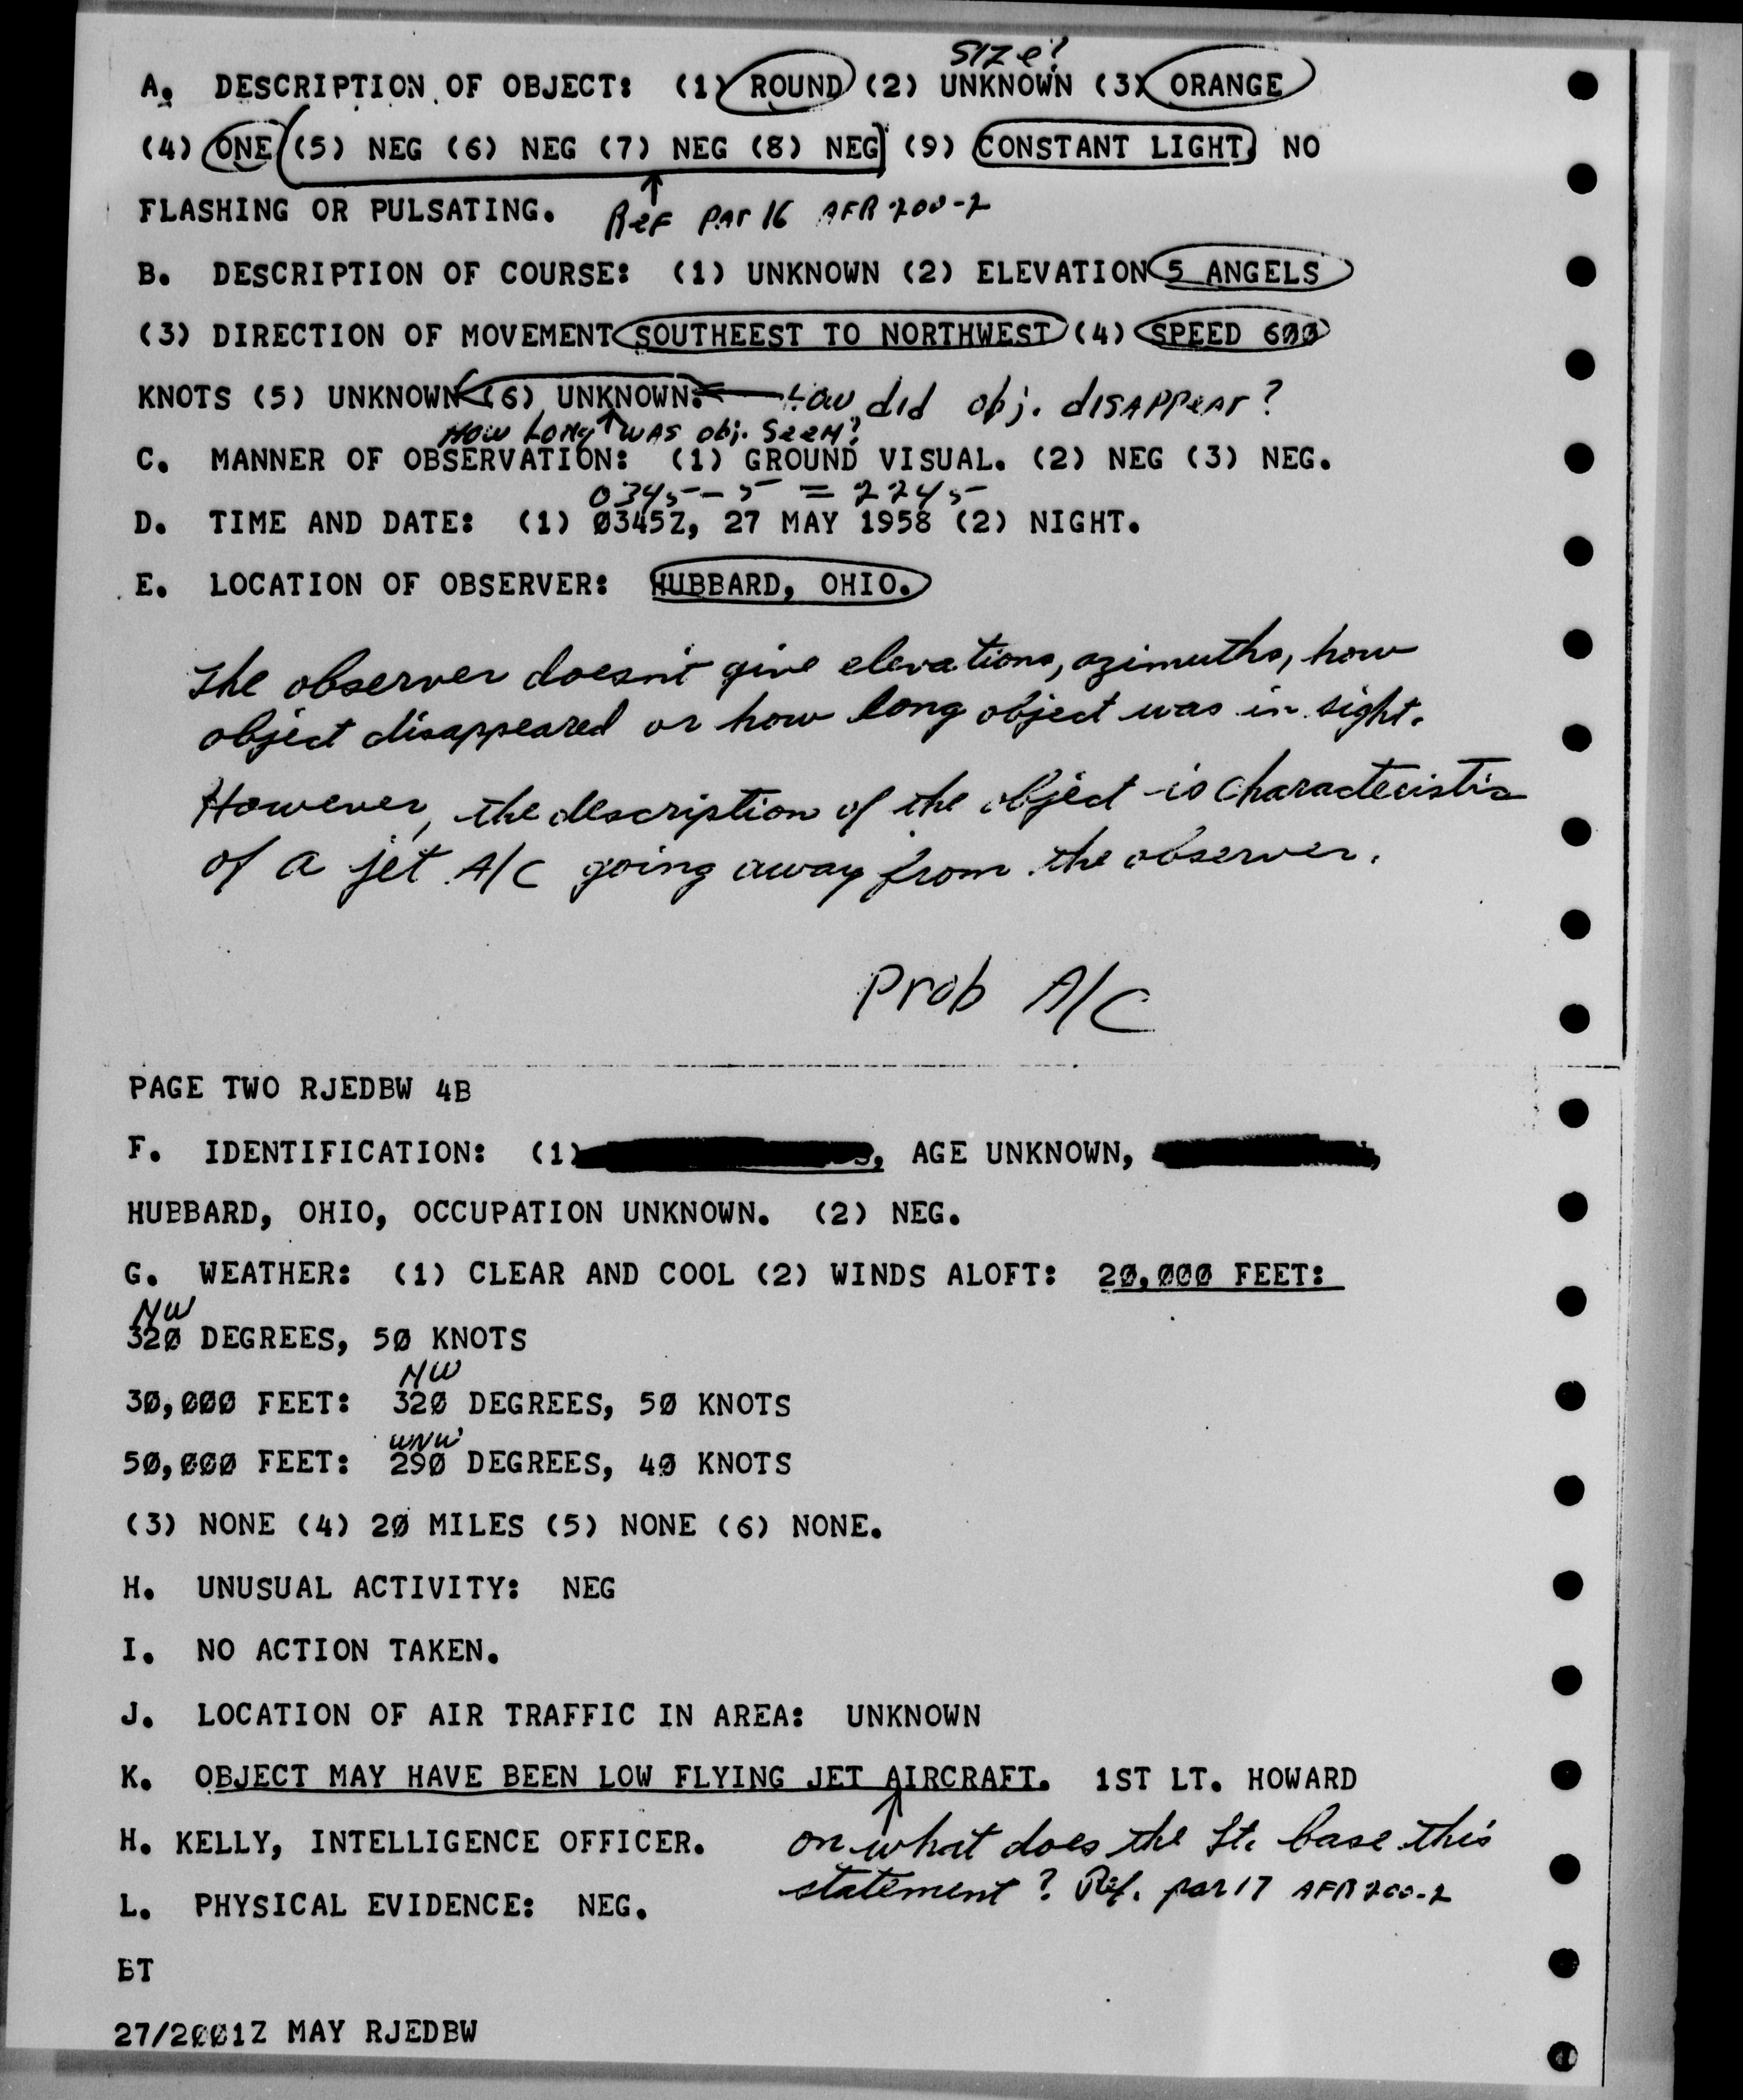 SIZE?
A. DESCRIPTION OF OBJECT: (1) ROUND (2) UNKNOWN (3) ORANGE
(4) ONE (5) NEG (6) NEG (7) NEG (8) NEG (9) CONSTANT LIGHT, NO
FLASHING OR PULSATING. Ref par 16 AFR 200-2
B. DESCRIPTION OF COURSE: (1) UNKNOWN (2) ELEVATION 5 ANGELS
(3) DIRECTION OF MOVEMENT SOUTHEEST TO NORTHWEST (4) SPEED 6ØØ
KNOTS (5) UNKNOWN (6) UNKNOWN. How did obj. disappear?
How long was obj. seen?
C. MANNER OF OBSERVATION: (1) GROUND VISUAL. (2) NEG (3) NEG.
0345 - 5 = 2245
D. TIME AND DATE: (1) Ø345Z, 27 MAY 1958 (2) NIGHT.
E. LOCATION OF OBSERVER: HUBBARD, OHIO.
The observer doesn't give elevations, azimuths, how
object disappeared or how long object was in sight.
However, the description of the object is characteristic
of a jet A/C going away from the observer.
Prob A/C
PAGE TWO RJEDBW 4B
F. IDENTIFICATION: (1) , AGE UNKNOWN, ,
HUBBARD, OHIO, OCCUPATION UNKNOWN. (2) NEG.
G. WEATHER: (1) CLEAR AND COOL (2) WINDS ALOFT: 2Ø,ØØØ FEET:
NW
32Ø DEGREES, 5Ø KNOTS
NW
3Ø,ØØØ FEET: 32Ø DEGREES, 5Ø KNOTS
WNW
5Ø,ØØØ FEET: 29Ø DEGREES, 4Ø KNOTS
(3) NONE (4) 2Ø MILES (5) NONE (6) NONE.
H. UNUSUAL ACTIVITY: NEG
I. NO ACTION TAKEN.
J. LOCATION OF AIR TRAFFIC IN AREA: UNKNOWN
K. OBJECT MAY HAVE BEEN LOW FLYING JET AIRCRAFT. 1ST LT. HOWARD
H. KELLY, INTELLIGENCE OFFICER. on what does the Lt. base this
statement? Ref. par 17 AFR 200-2
L. PHYSICAL EVIDENCE: NEG.
BT
27/2ØØ1Z MAY RJEDBW